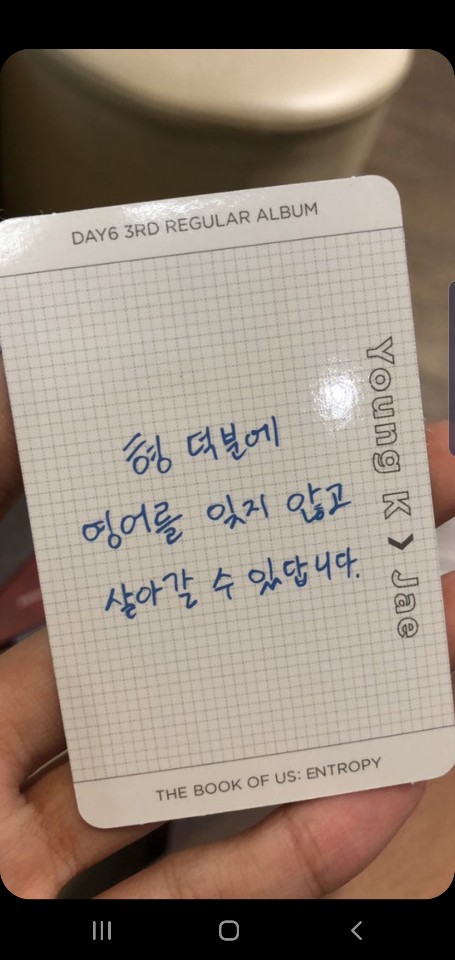 DAY6 3RD REGULAR ALBUM
형 덕분에
영어를 잊지 않고
살아갈 수 있답니다.
Young K > Jae
THE BOOK OF US: ENTROPY